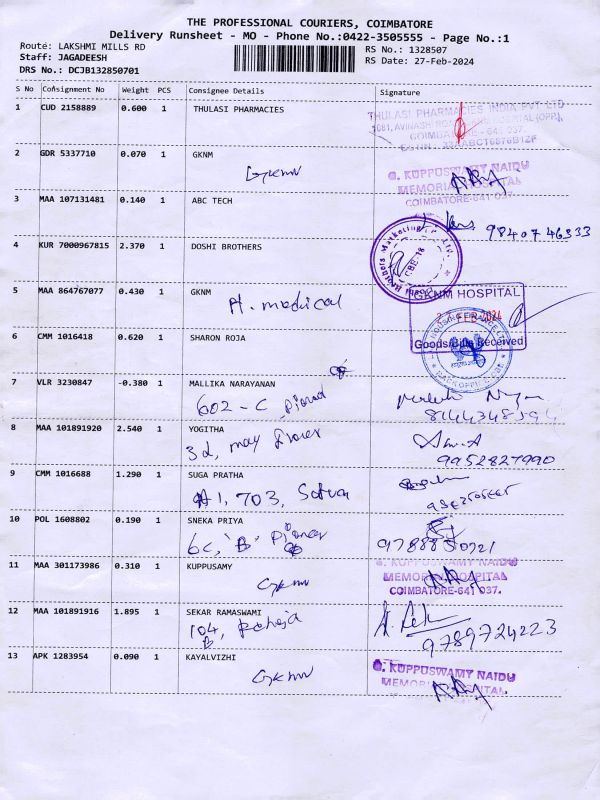 THE PROFESSIONAL COURIERS, COIMBATORE
Delivery Runsheet - MO - Phone No.:0422-3505555 - Page No.:1
Route: LAKSHMI MILLS RD
RS No.: 1328507
Staff: JAGADEESH
RS Date: 27-Feb-2024
DRS No.: DCJB132850701
S No Consignment No Weight PCS Consignee Details Signature
1 CUD 2158889 0.600 1 THULASI PHARMACIES
THULASI PHARMACIES INDIA PVT LTD
COIMBATORE - 641 037
2 GDR 5337710 0.070 1 GKNM
GKNM
G. KUPPUSWAMY NAIDU
MEMORIAL HOSPITAL
COIMBATORE-641 037
3 MAA 107131481 0.140 1 ABC TECH
98407 46333
4 KUR 7000967815 2.370 1 DOSHI BROTHERS
Brothers Marketing
CBE-18
5 MAA 864767077 0.430 1 GKNM
H. medical
GKNM HOSPITAL
FEB 2024
Goods/Bills Received
6 CMM 1016418 0.620 1 SHARON ROJA
7 VLR 3230847 -0.380 1 MALLIKA NARAYANAN
602 - C
8 MAA 101891920 2.540 1 YOGITHA
3d, may flower
9952827990
9 CMM 1016688 1.290 1 SUGA PRATHA
703,
10 POL 1608802 0.190 1 SNEKA PRIYA
6C, 'B'
11 MAA 301173986 0.310 1 KUPPUSAMY
GKNM
G. KUPPUSWAMY NAIDU
MEMORIAL HOSPITAL
COIMBATORE-641 037.
12 MAA 101891916 1.895 1 SEKAR RAMASWAMI
104, Raheja
B
9789724223
13 APK 1283954 0.090 1 KAYALVIZHI
GKNM
G. KUPPUSWAMY NAIDU
MEMORIAL HOSPITAL